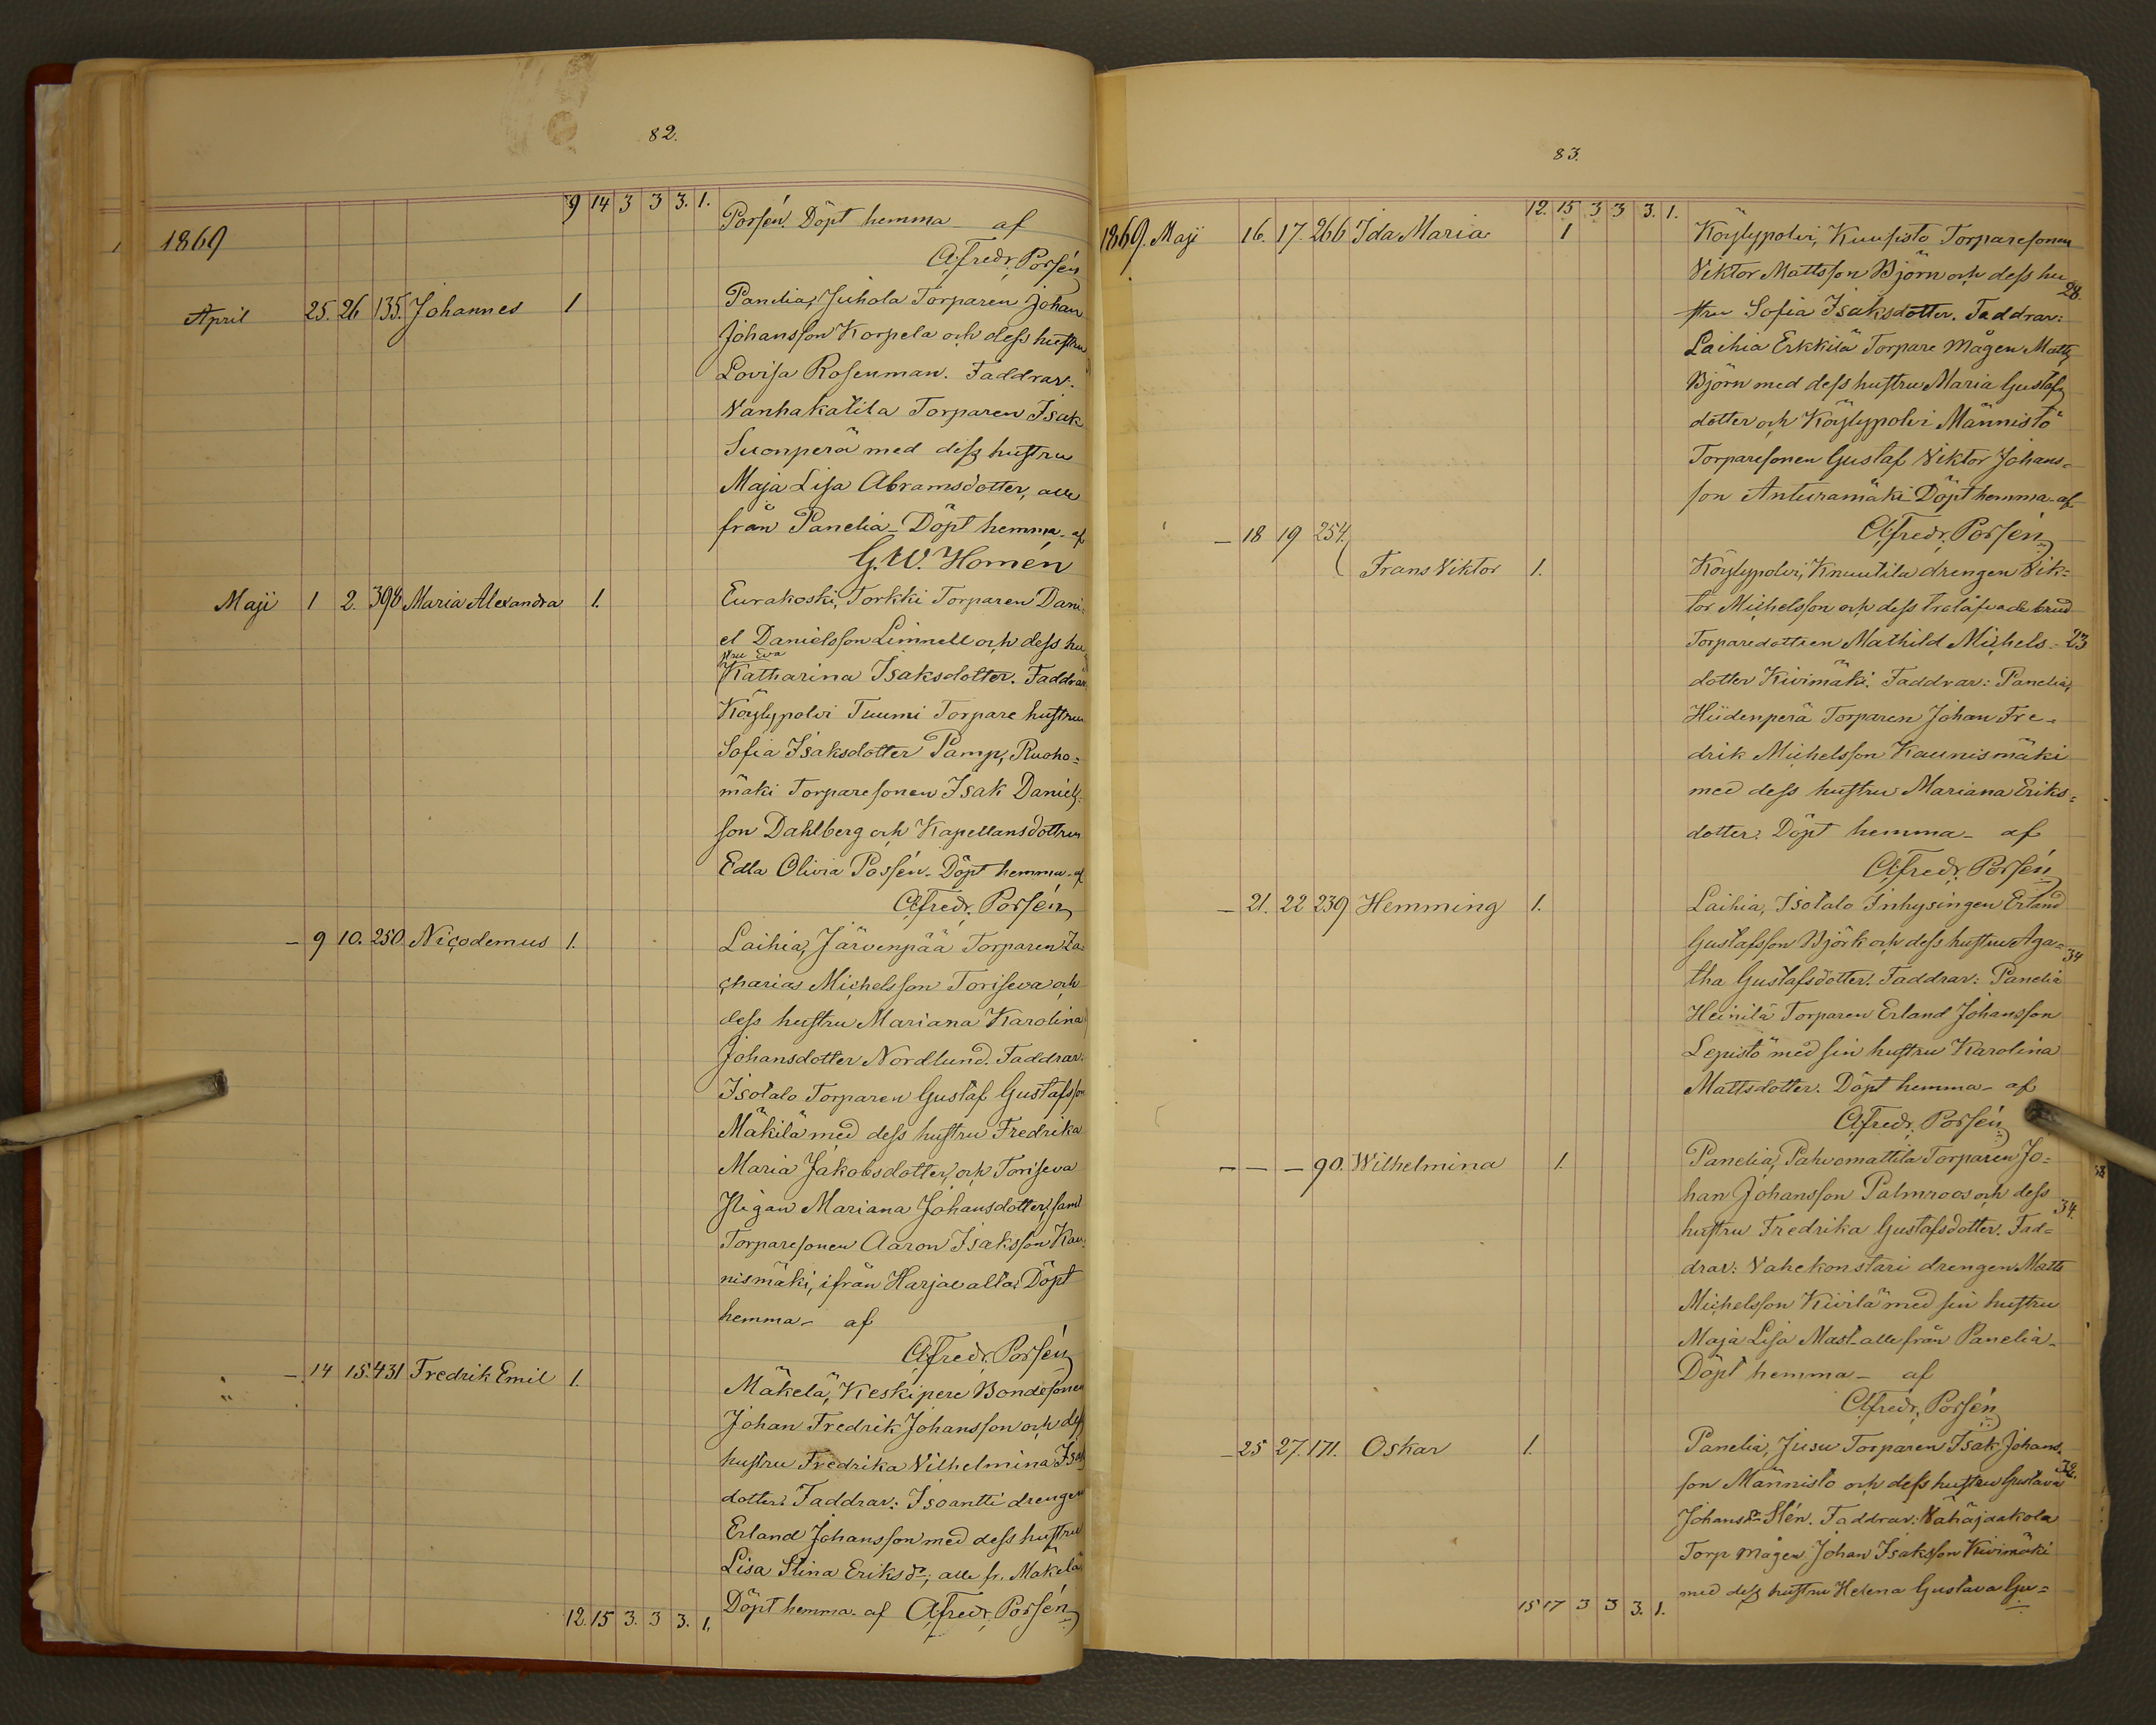 82.
9 14 3 3 3. 1.
Porsén. Döpt hemma af
1869
Alfredr. Porsén
April 25. 26 135. Johannes 1 Panelia, Juhola Torparen Johan
Johansson Korpela och dess hustru
Lovisa Rosenman. Faddrar:
Vanhakatila Torparen Isak
Suonperä med dess hustru
Maja Lisa Abramsdotter, alla
från Panelia. Döpt hemma af
G. W. Homén
Maji 1 2. 398 Maria Alexandra 1. Eurakoski, Torkki Torparen Dani-
el Danielsson Limnell och dess hu-
stru Eva
Katharina Isaksdotter. Faddrar
Köylypolvi Tuumi Torpare hustrun
Sofia Isaksdotter Pamp, Ruoho=
mäki Torparesonen Isak Daniels-
son Dahlberg och Kapellansdottren
Edla Olivia Possén. Döpt hemma af
Alfredr. Porsén
– 9 10. 250 Nicodemus 1. Laihia, Järvenpää Torparen Za-
charias Michelsson Toriseva och
dess hustru Mariana Karolina
Johansdotter Nordlund. Faddrar:
Isotalo Torparen Gustaf Gustafsson
Mäkilä med dess hustru Fredrika
Maria Jakobsdotter, och Toriseva
Pigan Mariana Johansdotter, samt
Torparesonen Aaron Isaksson Kau-
nismäki, ifrån Harjavalta. Döpt
hemma – af
Alfredr. Porsén
– 14 15. 431 Fredrik Emil 1. Mäkelä, Keskipere Bondesonen
Johan Fredrik Johansson och dess
hustru Fredrika Vilhelmina Isaks
dotter. Faddrar: Isoantti drengen
Erland Johansson med dess hustru
Lisa Stina Eriksdr; alle fr. Mäkelä
Döpt hemma af Alfredr. Porsén
12. 15 3. 3 3. 1.
83.
12. 15 3 3 3. 1.
1869. Maji 16. 17. 266 Ida Maria 1 Köylypolvi, Kuusisto Torparesonen
Viktor Mattsson Björn och dess hu
28.
stru Sofia Isaksdotter. Faddrar:
Laihia Erkkilä Torpare Mågen Matts
Björn med dess hustru Maria Gustafs
dotter och Köylypolvi Männistö
Torparesonen Gustaf Viktor Johans=
son Anturamäki Döpt hemma af
– 18 19 254. Alfredr. Porsén
Frans Viktor 1. Köylypolvi, Knuutila drengen Vik=
tor Michelsson och dess trolåfvade brud
Torparedottren Mathild Michels- 23
dotter Kivimäki. Faddrar: Panelia,
Hiidenperä Torparen Johan Fre-
drik Michelsson Kaunismäki
med dess hustru Mariana Eriks=
dotter. Döpt hemma – af
Alfredr. Porsén
– 21. 22 239 Hemming 1. Laihia, Isotalo Inhysingen Erland
Gustafsson Björk och dess hustru Aga= 34
tha Gustafsdotter. Faddrar: Panelia
Heinilä Torparen Erland Johansson
Lepistö med sin hustru Karolina
Mattsdotter. Döpt hemma – af
Alfredr. Porsén
– – – 90. Wilhelmina 1. Panelia, Pahvomattila Torparen Jo=
han Johansson Palmroos och dess
34.
hustru Fredrika Gustafsdotter. Fad=
drar: Vahekonstari drengen Matts
Michelsson Kiirlä med sin hustru
Maja Lisa Mast alle från Panelia.
Döpt hemma – af
Alfredr. Porsén
– 25 27. 171. Oskar 1. Panelia, Jusu Torparen Isak Johans-
32.
son Männisto och dess hustru Gustava
Johansdr Stén. Faddrar: Vähäjaakola
Torp mågen Johan Isaksson Kivimäki
med dess hustru Helena Gustava Gu=
15 17 3 3 3. 1.